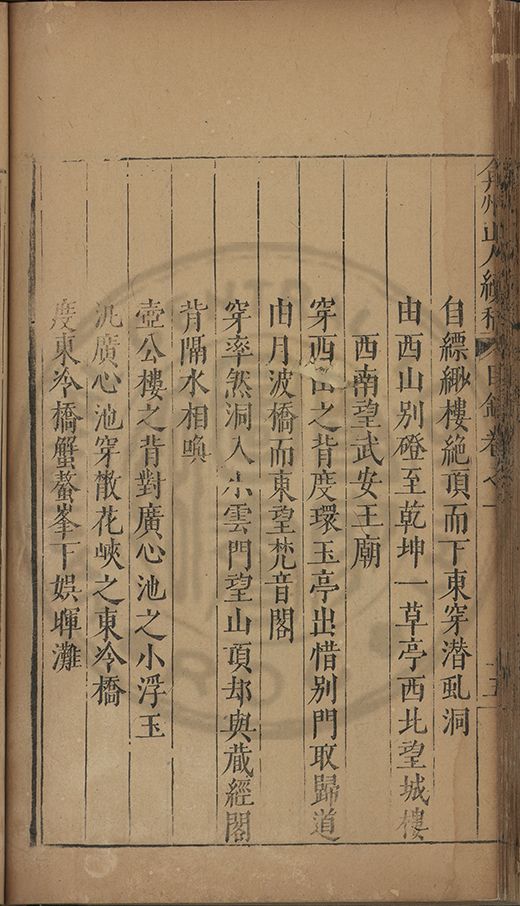 弇州山人續稿 目錄卷之一 十五
自縹緲樓絶頂而下東穿潛虬洞
由西山別磴至乾坤一草亭西北望城樓
西南望武安王廟
穿西山之背度環玉亭出惜別門取歸道
由月波橋而東望梵音閣
穿率然洞入小雲門望山頂却與藏經閣
背隔水相喚
壺公樓之背對廣心池之小浮玉
汎廣心池穿散花峽之東泠橋
度東泠橋蟹螯峯下娛暉灘